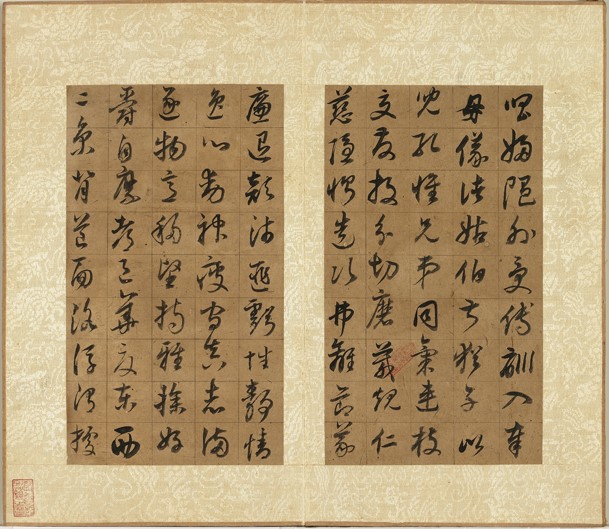 唱婦隨外受傅訓入奉
母儀諸姑伯叔猶子比
兒孔懷兄弟同氣連枝
交友投分切磨箴規仁
慈隱惻造次弗離節義
廉退顛沛匪虧性靜情
逸心動神疲守真志滿
逐物意移堅持雅操好
爵自縻都邑華夏東西
二京背芒面洛浮渭據